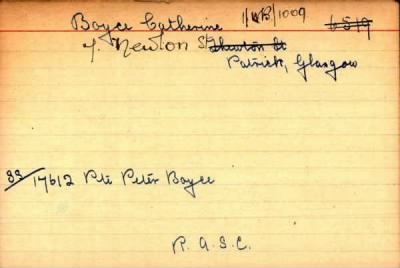 Boyce Catherine 1/WB/1009 6519
7. Newton St
Patrick, Glasgow
33/17612 Pte Peter Boyce
R.A.S.C.